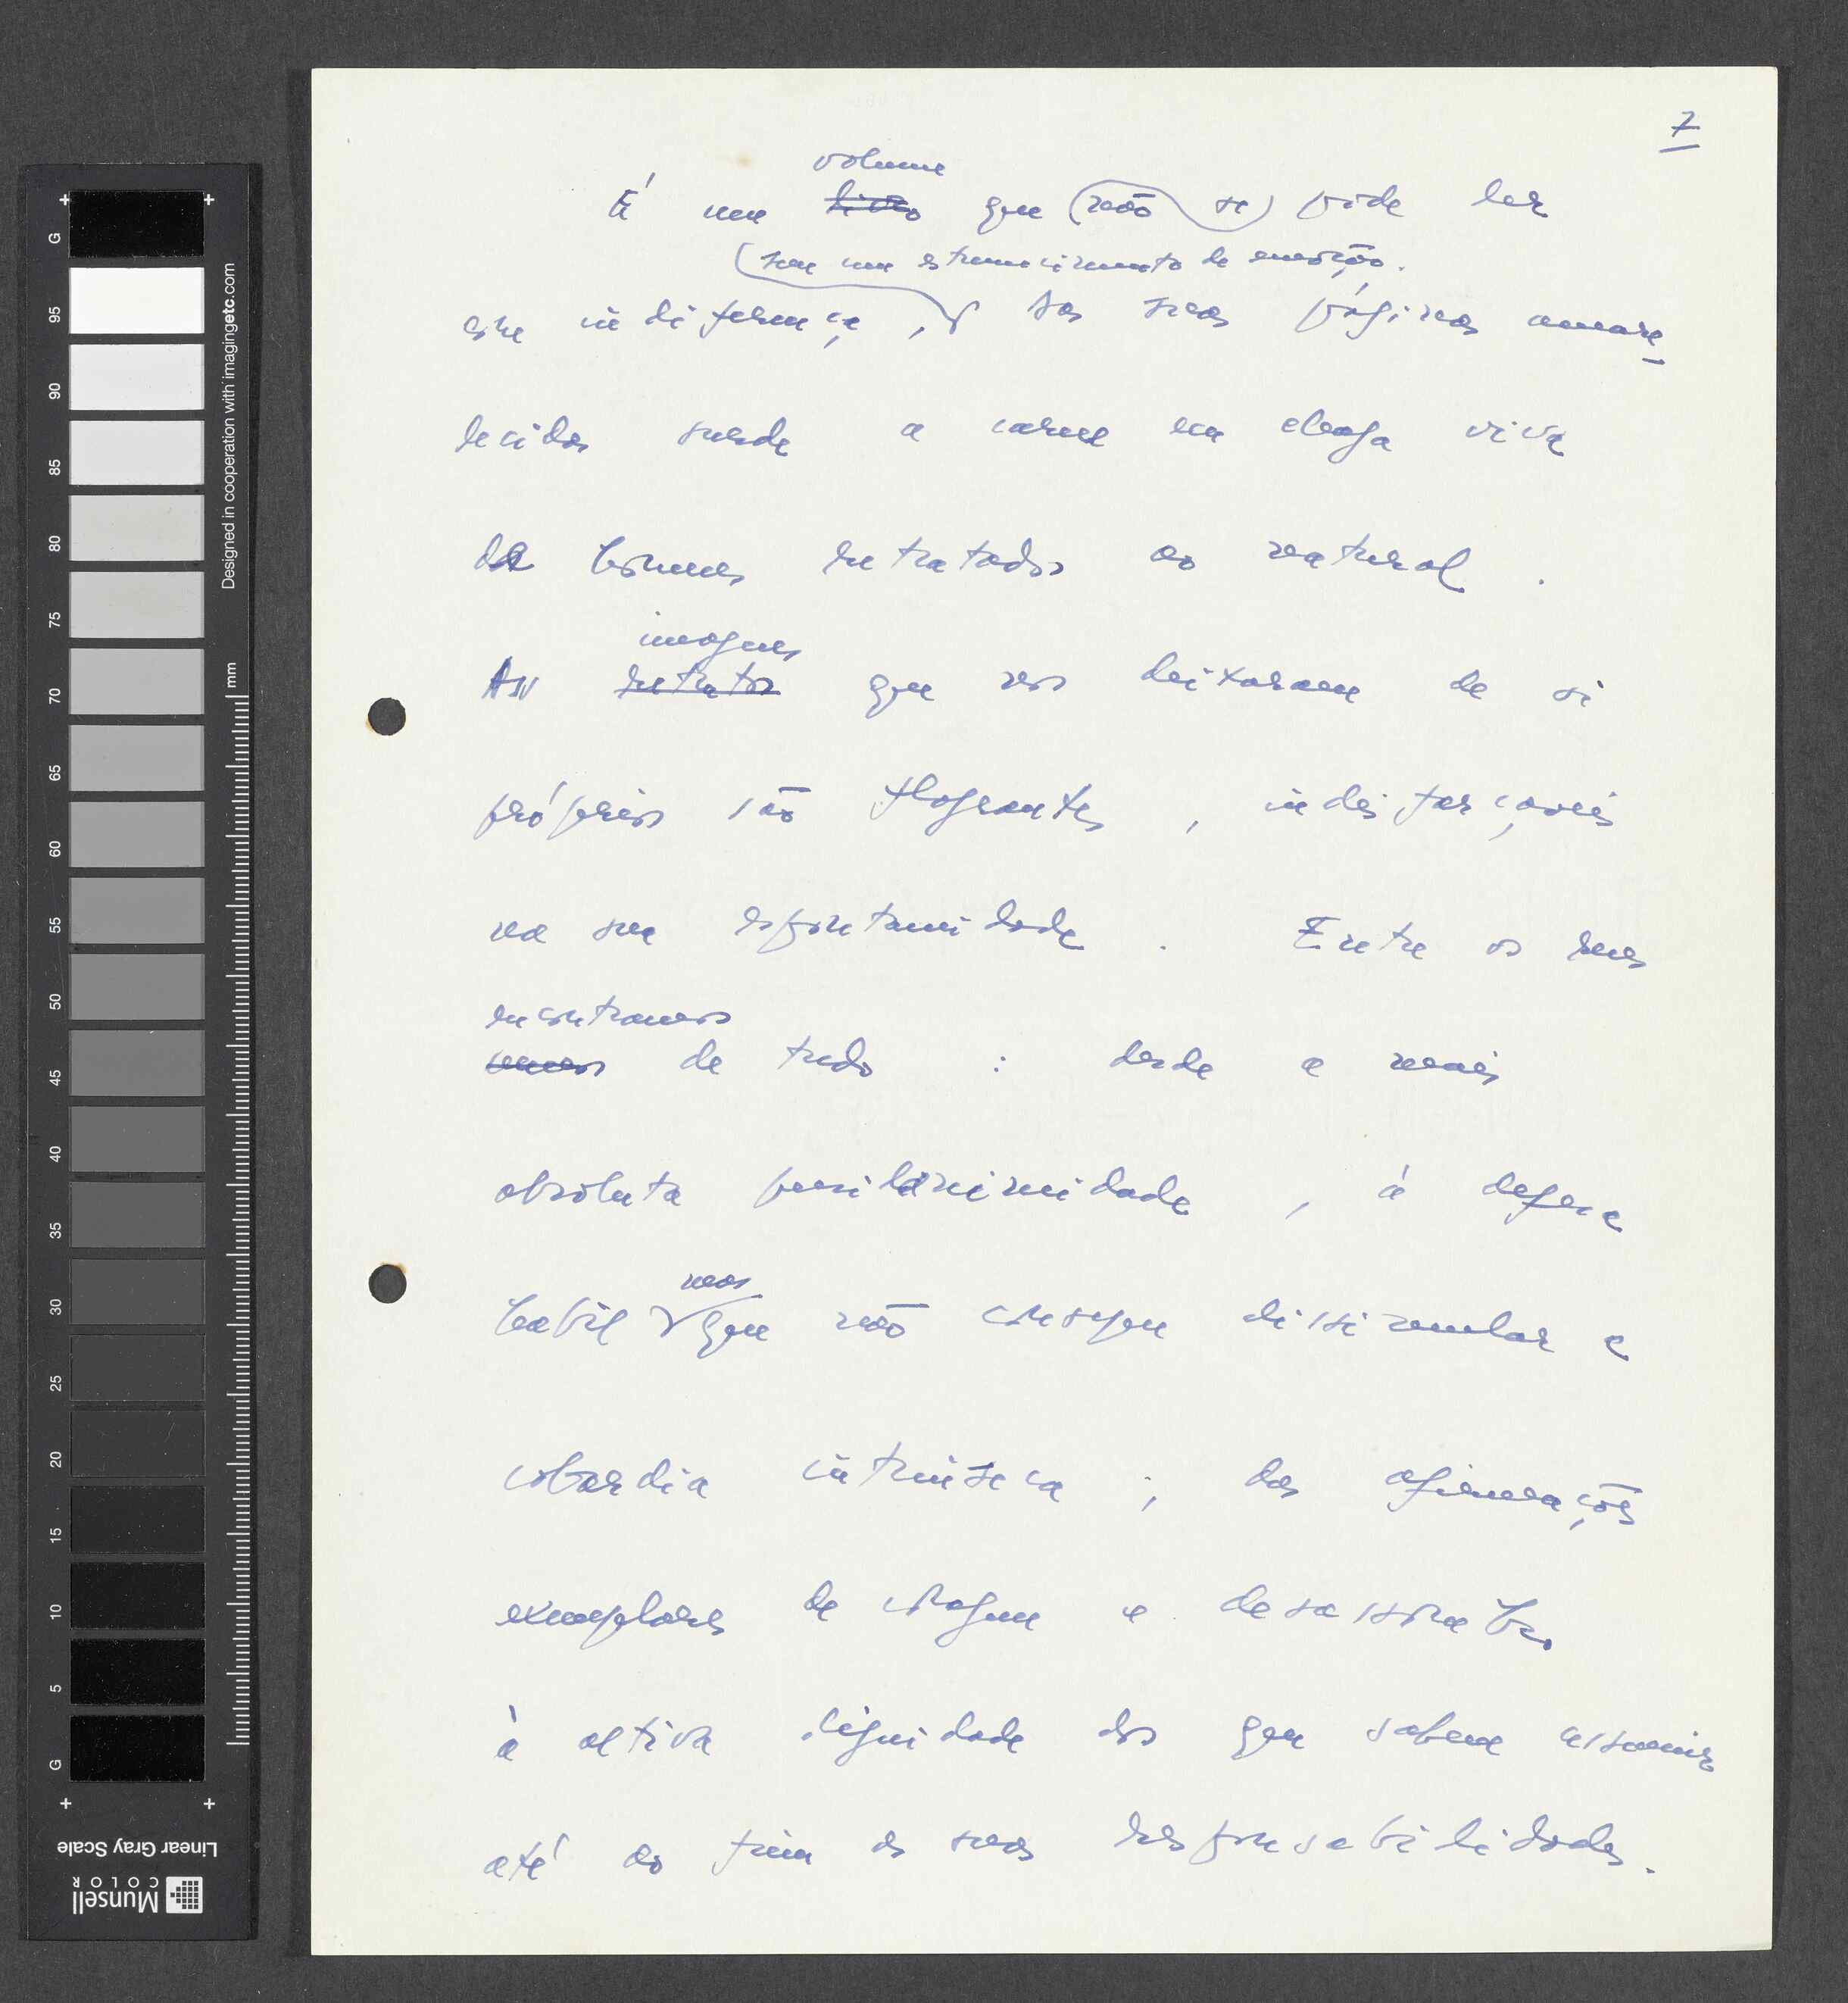 7
volume
É um livro que (não se) pode ler
(sem um estremecimento de emoção.
com indiferença, Das suas páginas amare
lecidas surde a carne em chaga viva
de homens retratados ao natural.
imagens
As retratos que nos deixaram de si
próprios são flagrantes, indisfarçáveis
na sua espontaneidade. Entre os reus
encontramos
vemos de tudo : desde a mais
absoluta pusilanimidade, à defesa
mas
habil que não consegue dissimular a
cobardia intrínseca; das afirmações
exemplares de coragem e desassombro
à altiva dignidade dos que sabem assumir
até ao fim as suas responsabilidades.
G 95 90 85 80 75 70 65 60 55 50 45 40 35 30 25 20 15 10 5 G
Designed in cooperation with imagingetc.com
mm
Linear Gray Scale
Munsell
COLOR